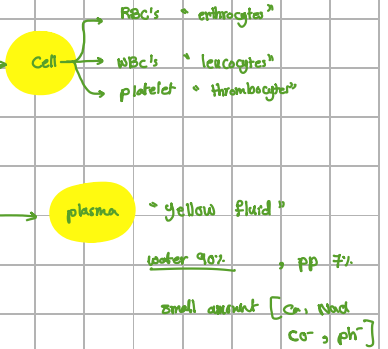 RBC's " erthrocytes"
Cell WBC's " leucocytes"
platelet " thrombocyter"
plasma " yellow fluid "
water 90% , pp 7%
small amount [ Ca, Nacl
Co⁻, ph⁻ ]